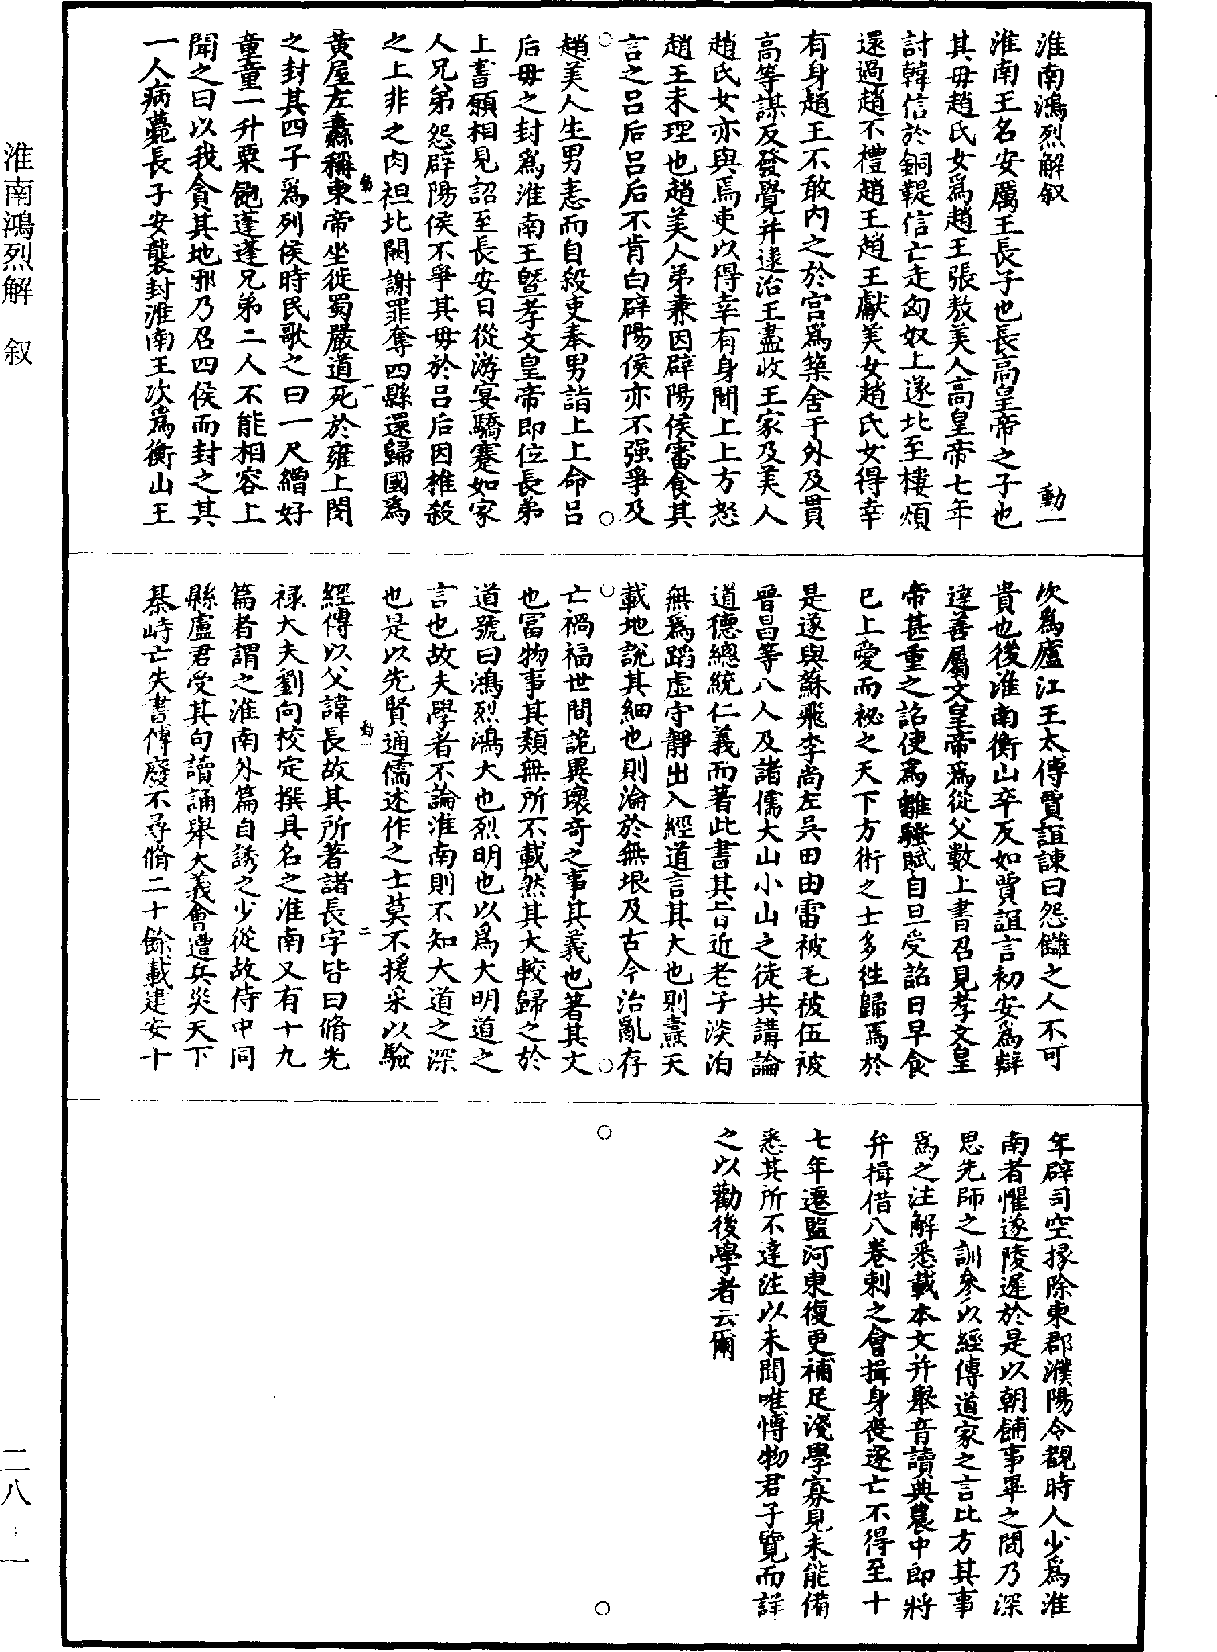 淮南鴻烈解叙　動一
淮南王名安厲王長子也長高皇帝之子也
其母趙氏女爲趙王張敖美人高皇帝七年
討韓信於銅鞮信亡走匈奴上遂北至樓煩
還過趙不禮趙王趙王獻美女趙氏女得幸
有身趙王不敢内之於宫爲築舍于外及貫
高等謀反發覺并逮治王盡收王家及美人
趙氏女亦與焉吏以得幸有身聞上上方怒
趙王未理也趙美人弟兼因辟陽侯審食其
言之吕后吕后不肯白辟陽侯亦不强爭及
趙美人生男恚而自殺吏奉男詣上上命吕
后母之封爲淮南王暨孝文皇帝即位長弟
上書願相見詔至長安日從游宴驕蹇如家
人兄弟怨辟陽侯不爭其母於吕后因椎殺
之上非之肉袒北闕謝罪奪四縣還歸國爲
黃屋左纛稱東帝坐徙蜀嚴道死於雍上閔
之封其四子爲列侯時民歌之曰一尺繒好
童童一升粟飽蓬蓬兄弟二人不能相容上
聞之曰以我貪其地邪乃召四侯而封之其
一人病薨長子安襲封淮南王次爲衡山王
次爲廬江王太傅賈誼諫曰怨讎之人不可
貴也後淮南衡山卒反如賈誼言初安爲辯
達善屬文皇帝爲從父數上書召見孝文皇
帝甚重之詔使爲離騷賦自旦受詔日早食
已上愛而祕之天下方術之士多往歸焉於
是遂與蘇飛李尚左吳田由雷被毛被伍被
晉昌等八人及諸儒大山小山之徒共講論
道德總統仁義而著此書其旨近老子淡泊
無爲蹈虚守靜出入經道言其大也則燾天
載地說其細也則淪於無垠及古今治亂存
亡禍福世間詭異瓌奇之事其義也著其文
也富物事其類無所不載然其大較歸之於
道號曰鴻烈鴻大也烈明也以爲大明道之
言也故夫學者不論淮南則不知大道之深
也是以先賢通儒述作之士莫不援采以驗
經傳以父諱長故其所著諸長字皆曰脩光
禄大夫劉向校定撰具名之淮南又有十九
篇者謂之淮南外篇自誘之少從故侍中同
縣盧君受其句讀誦舉大義會遭兵災天下
棊峙亡失書傳廢不尋脩二十餘載建安十
年辟司空掾除東郡濮陽令覩時人少爲淮
南者懼遂陵遲於是以朝餔事畢之間乃深
思先師之訓參以經傳道家之言比方其事
爲之注解悉載本文并舉音讀典農中郎將
弁揖借八卷刺之會揖身喪遂亡不得至十
七年遷監河東復更補足淺學寡見未能備
悉其所不達注以未聞唯博物君子覽而詳
之以勸後學者云爾
淮南鴻烈解　叙
二八·一